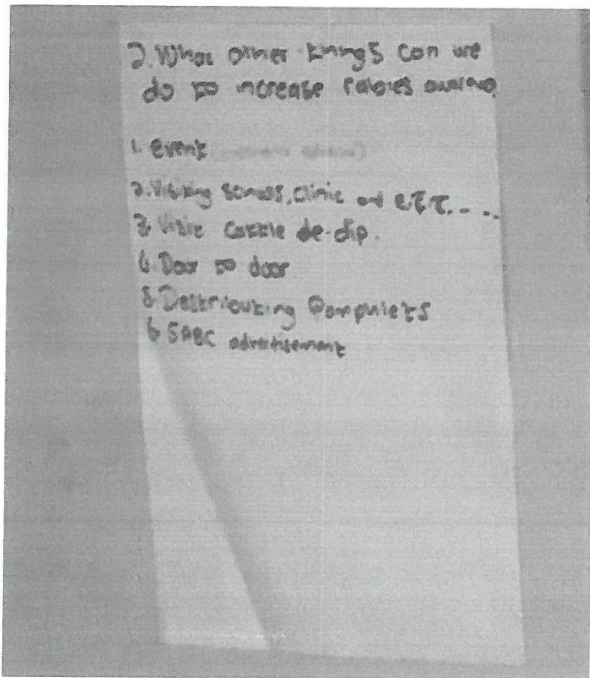 2. What other things can we
do to increase rabies
1. Event
2. Visiting schools, clinic and e.t.c. - - -
3. Visit cattle de-dip.
4. Door to door
5. Destributing Pamphlets
6. SABC advertisement